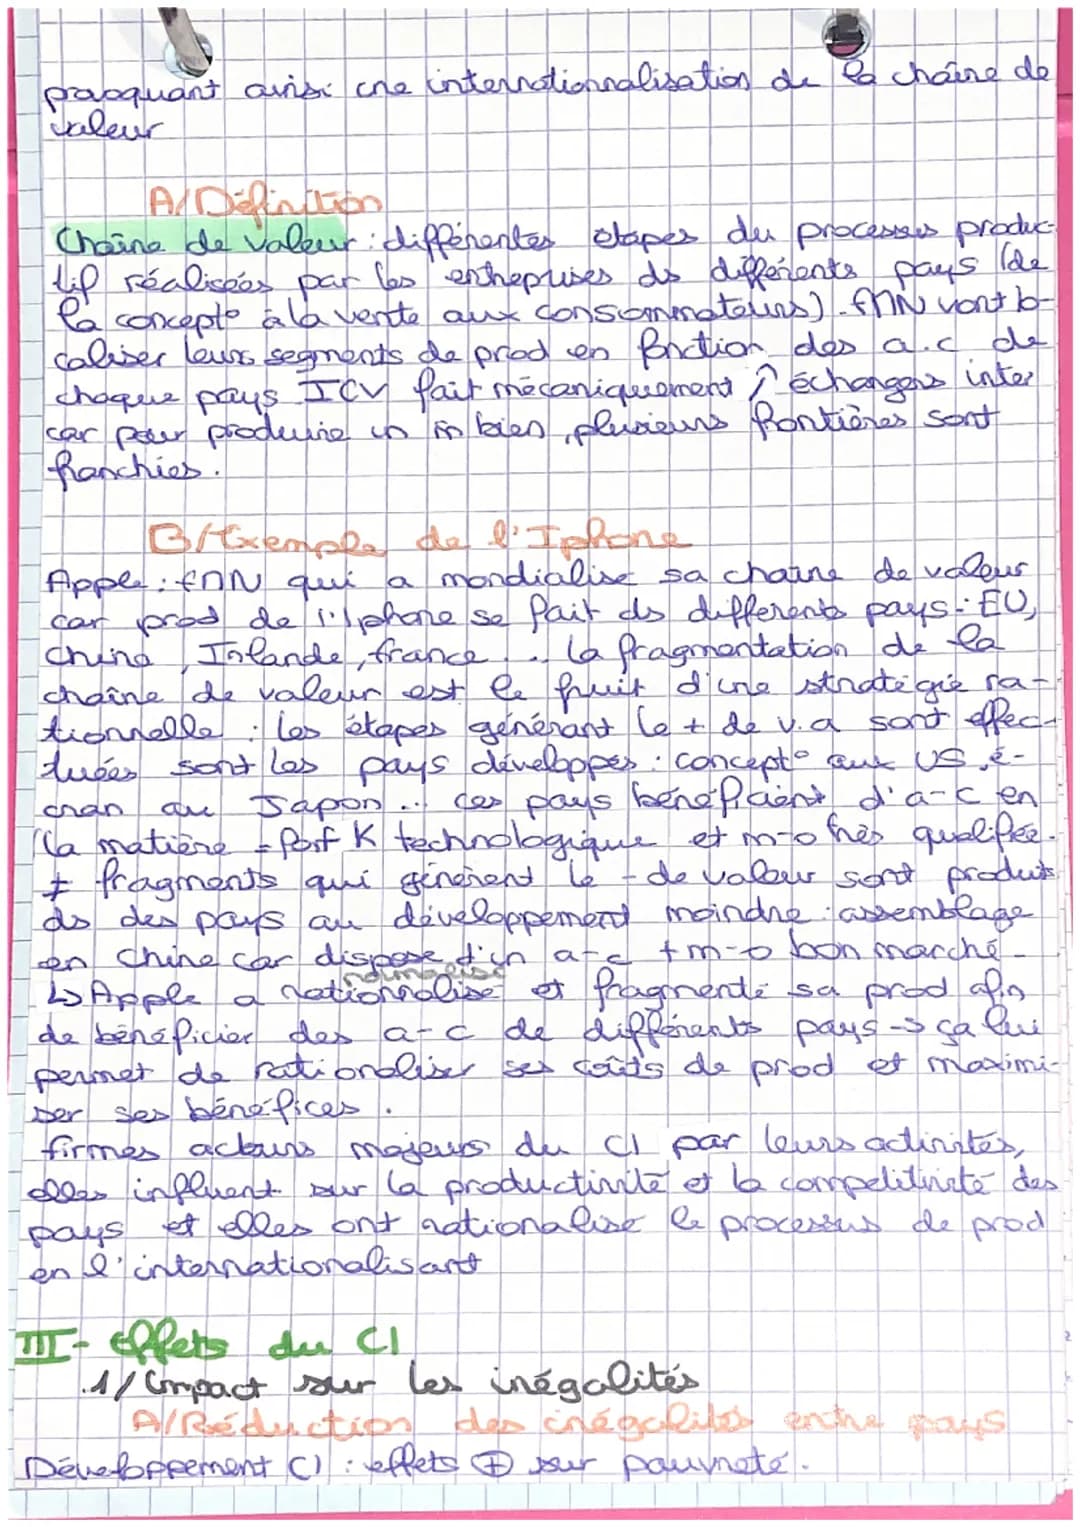 provoquant ainsi une internationnalisation de la chaîne de
valeur
A/Définition
Chaîne de valeur : différentes étapes du processus produc-
tif réalisées par les entreprises ds différents pays (de
la concept° à la vente aux consommateurs). FMN vont lo-
caliser leurs segments de prod en fonction des a.c de
chaque pays ICV fait mécaniquement ↗ échanges inter
car pour produire un bien, plusieurs frontières sont
franchies.
B/Exemple de l'Iphone
Apple : FMN qui a mondialisé sa chaîne de valeur
car prod de l'Iphone se fait ds differents pays : EU,
Chine, Irlande, france... La fragmentation de la
chaîne de valeur est le fruit d'une stratégie ra-
tionnelle : les étapes générant le + de v.a sont effec-
tuées sont les pays développés : concept° aux US, é-
cran au Japon... ces pays bénéficient d'a-c en
la matière = fort K technologique et m-o très qualifée.
≠ fragments qui génèrent le - de valeur sont produits
ds des pays au développement moindre : assemblage
en Chine car dispose d'un a-c + m-o bon marché -
↳ Apple a rationnalisé et fragmenté sa prod afin
de bénéficier des a-c de différents pays → ça lui
permet de rationaliser ses coûts de prod et maximi-
ser ses bénéfices.
firmes acteurs majeurs du CI par leurs activités,
elles influent sur la productivité et la compétitivité des
pays et elles ont rationalisé le processus de prod
en l'internationalisant
III- Effets du CI
1/ Impact sur les inégalités
A/Réduction des inégalités entre pays
Développement CI : effets ⊕ sur pauvreté.